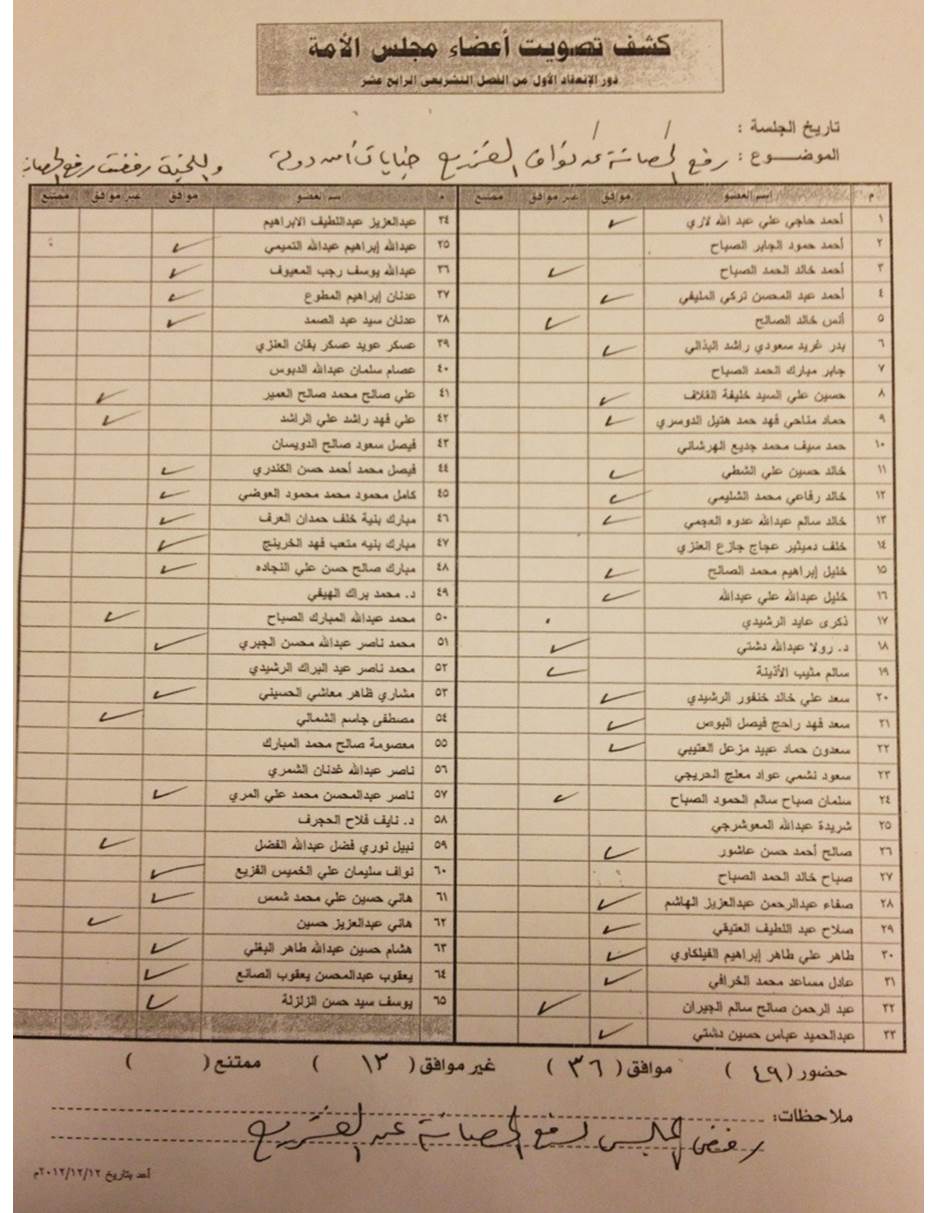 كشف تصويت أعضاء مجلس الأمة
دور الإنعقاد الأول من الفصل التشريعي الرابع عشر
تاريخ الجلسة :
الموضوع : رفع الحصانة عن نواف الفزيع جنايات أمن دولة واللجنة رفضت رفع الحصانة
م اسم العضو موافق غير موافق ممتنع م اسم العضو موافق غير موافق ممتنع
١ أحمد حاجي علي عبد الله لاري ✓ ٣٤ عبدالعزيز عبداللطيف الابراهيم
٢ أحمد حمود الجابر الصباح ٣٥ عبدالله إبراهيم عبدالله التميمي ✓
٣ أحمد خالد الحمد الصباح ✓ ٣٦ عبدالله يوسف رجب المعيوف ✓
٤ أحمد عبد المحسن تركي المليفي ✓ ٣٧ عدنان إبراهيم المطوع ✓
٥ أنس خالد الصالح ✓ ٣٨ عدنان سيد عبد الصمد ✓
٦ بدر غريد سعودي راشد البذالي ✓ ٣٩ عسكر عويد عسكر بقان العنزي
٧ جابر مبارك الحمد الصباح ٤٠ عصام سلمان عبدالله الدبوس
٨ حسين علي السيد خليفة القلاف ✓ ٤١ علي صالح محمد صالح العمير ✓
٩ حماد مناحي فهد حمد هتيل الدوسري ✓ ٤٢ علي فهد راشد علي الراشد ✓
١٠ حمد سيف محمد جديع الهرشاني ٤٣ فيصل سعود صالح الدويسان
١١ خالد حسين علي الشطي ✓ ٤٤ فيصل محمد أحمد حسن الكندري ✓
١٢ خالد رفاعي محمد الشليمي ✓ ٤٥ كامل محمود محمد محمود العوضي ✓
١٣ خالد سالم عبدالله عدوه العجمي ✓ ٤٦ مبارك بنية خلف حمدان العرف ✓
١٤ خلف دميثير عجاج جازع العنزي ٤٧ مبارك بنيه متعب فهد الخرينج ✓
١٥ خليل إبراهيم محمد الصالح ✓ ٤٨ مبارك صالح حسن علي النجاده ✓
١٦ خليل عبدالله علي عبدالله ✓ ٤٩ د. محمد براك الهيفي
١٧ ذكرى عايد الرشيدي ٥٠ محمد عبدالله المبارك الصباح ✓
١٨ د. رولا عبدالله دشتي ✓ ٥١ محمد ناصر عبدالله محسن الجبري ✓
١٩ سالم مثيب الأذينة ✓ ٥٢ محمد ناصر عبد البراك الرشيدي
٢٠ سعد علي خالد خنفور الرشيدي ✓ ٥٣ مشاري ظاهر معاشي الحسيني ✓
٢١ سعد فهد راجح فيصل البوص ✓ ٥٤ مصطفى جاسم الشمالي ✓
٢٢ سعدون حماد عبيد مزعل العتيبي ✓ ٥٥ معصومة صالح محمد المبارك
٢٣ سعود نشمي عواد معلج الحريجي ٥٦ ناصر عبدالله غدنان الشمري
٢٤ سلمان صباح سالم الحمود الصباح ✓ ٥٧ ناصر عبدالمحسن محمد علي المري ✓
٢٥ شريدة عبدالله المعوشرجي ٥٨ د. نايف فلاح الحجرف
٢٦ صالح أحمد حسن عاشور ✓ ٥٩ نبيل نوري فضل عبدالله الفضل ✓
٢٧ صباح خالد الحمد الصباح ٦٠ نواف سليمان علي الخميس الفزيع ✓
٢٨ صفاء عبدالرحمن عبدالعزيز الهاشم ✓ ٦١ هاني حسين علي محمد شمس ✓
٢٩ صلاح عبد اللطيف العتيقي ✓ ٦٢ هاني عبدالعزيز حسين ✓
٣٠ طاهر علي طاهر إبراهيم الفيلكاوي ✓ ٦٣ هشام حسين عبدالله طاهر البغلي ✓
٣١ عادل مساعد محمد الخرافي ✓ ٦٤ يعقوب عبدالمحسن يعقوب الصانع ✓
٣٢ عبد الرحمن صالح سالم الجيران ✓ ٦٥ يوسف سيد حسن الزلزلة ✓
٣٣ عبدالحميد عباس حسين دشتي ✓
حضور ( ٤٩ ) موافق ( ٣٦ ) غير موافق ( ١٣ ) ممتنع ( )
ملاحظات:
رفض المجلس لرفع الحصانة عن الفزيع
أعد بتاريخ ٢٠١٢/١٢/١٢م